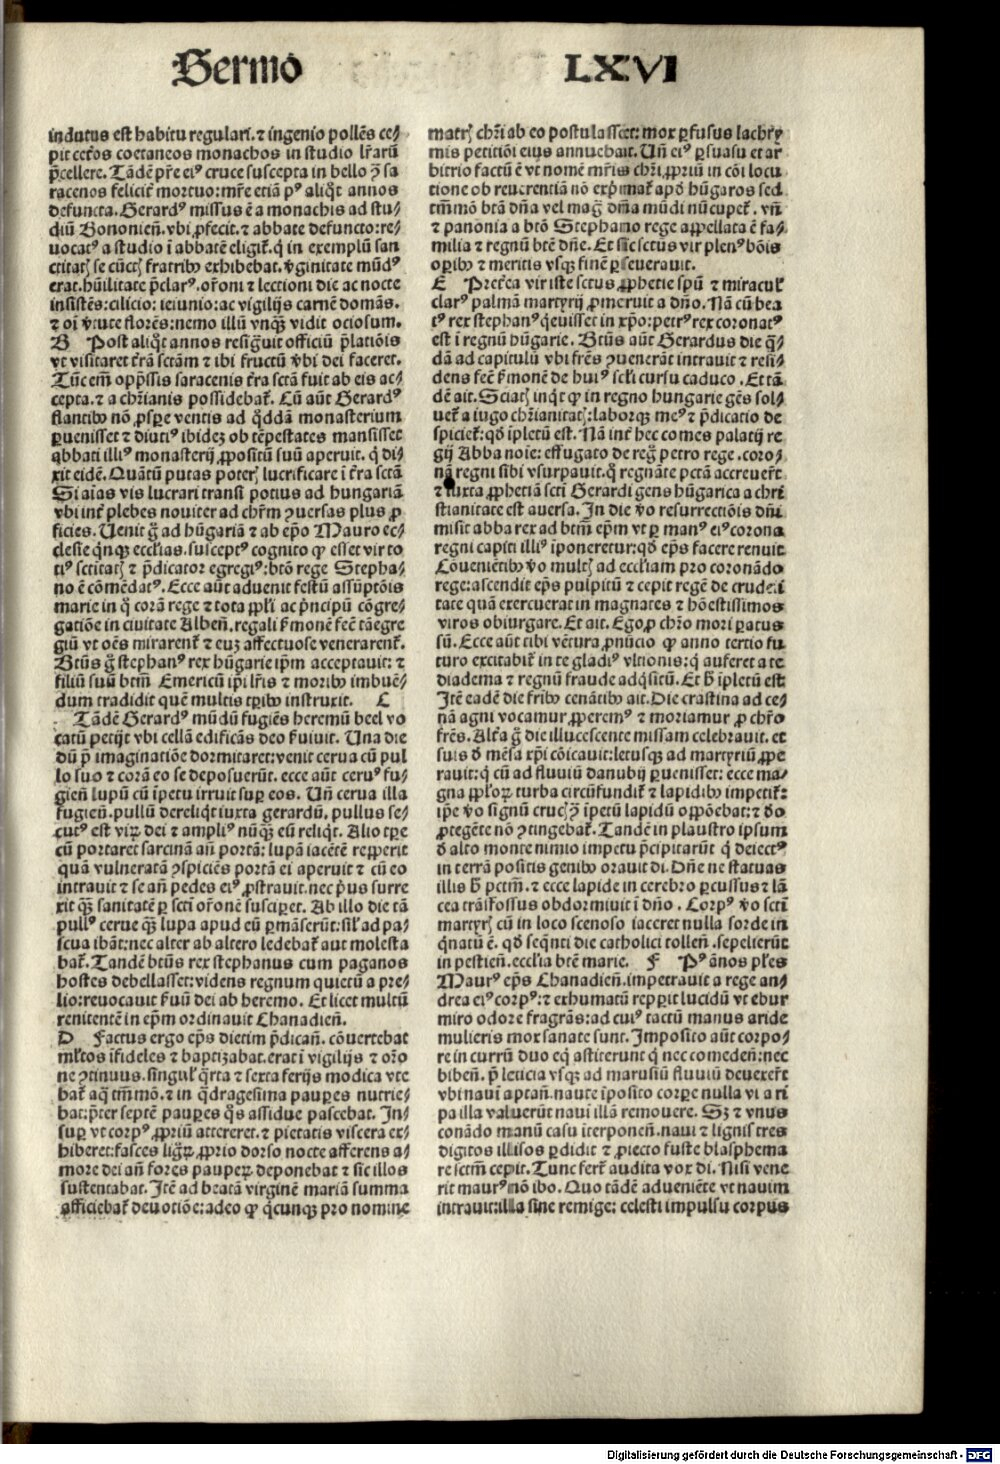 Sermo LXVI
indutus est habitu regulari. ⁊ ingenio pollēs ce⸗
pit cet̄os coetaneos monachos in studio lr̄arū
p̄cellere. Tādē pr̄e eiꝰ cruce suscepta in bello ꝯ̄ sa
racenos felicit̄ mortuo: mr̄e etiā pꝰ aliq̄t annos
defuncta. Gerardꝰ missus ē a monachis ad stu⸗
diū Bononien̄. vbi ꝓfecit. ⁊ abbate defuncto: re⸗
vocatꝰ a studio ī abbatē eligit̄. q̇ in exemplū san
ctitatꝭ se cūctꝭ fratribꝰ exhibebat. v̄ginitate mūdꝰ
erat. hūilitate p̄clarꝰ. or̄oni ⁊ lectioni die ac nocte
insistēs: cilicio: ieiunio: ac vigilijs carnē domās.
⁊ oī v̄tute florēs: nemo illū vnꝙ̄ vidit ociosum.
B Post aliq̄t annos resiḡuit officiū p̄latiōis
vt visitaret t̄rā sctām ⁊ ibi fructū v̄bi dei faceret.
Tūc em̄ opp̄ssis saracenis t̄ra sctā fuit ab eis ac⸗
cepta. ⁊ a chr̄ianis possidebat̄. Cū aūt Gerardꝰ
flantibꝰ nō ꝓsꝑe ventis ad q̄ddā monasterium
ꝑuenisset ⁊ diutiꝰ ibidez ob tēpestates mansisset
abbati illiꝰ monasterij ꝓpositū suū aperuit. q̇ di⸗
xit eidē. Quātū putas poterꝭ lucrificare ī t̄ra sctā
Si aīas vis lucrari transi potius ad hungariā
vbi int̄ plebes noviter ad chr̄m ꝯuersas plus ꝓ
ficies. Uenit g̊ ad hūgariā ⁊ ab ep̄o Mauro ec⸗
clesie q̄nqꝫ eccl̄ias. susceptꝰ cognito ꝙ esset vir to
tiꝰ sctitatꝭ ⁊ p̄dicator egregiꝰ: btō rege Stepha⸗
no ē cōmēdatꝰ. Ecce aūt aduenit festū assūptōis
marie in q̊ corā rege ⁊ tota ꝓlī ac p̄ncipū cōgre⸗
gatiōe in ciuitate Alben̄. regali s̄monē fec̄ tā egre
giū vt oēs mirarent̄ ⁊ euz affectuose venerarent̄.
Btūs g̊ stephanꝰ rex hūgarie ip̄m acceptauit: ⁊
filiū suū btm̄ Emericū ip̄i lr̄is ⁊ moribꝰ imbuē⸗
dum tradidit quē multis tꝑibꝰ instruxit. C
Tādē Gerardꝰ mūdū fugiēs heremū beel vo
catū petijt vbi cellā edificās deo s̄uiuit. Una die
dū p̄ imaginatiōe dormitaret: venit cerua cū pul
lo suo ⁊ corā eo se deposuerūt. ecce aūt ceruꝰ fu⸗
gien̄ lupū cū īpetu irruit suꝑ eos. Un̄ cerua illa
fugien̄. pullū dereliq̄t iuxta gerardū. pullus se⸗
cutꝰ est virꝝ dei ⁊ ampliꝰ nūꝙ̄ eū reliq̄t. Alio tꝑe
cū portaret sarcinā an̄ portā: lupā iacētē reꝑperit
quā vulneratā ꝯspiciēs portā ei aperuit ⁊ cū eo
intrauit ⁊ se an̄ pedes eiꝰ ꝓstrauit. nec p̄us surre
xit ꝙ̄ sanitatē ꝑ scti or̄onē susciꝑet. Ab illo die tā
pullꝰ cerue ꝙ̄ lupa apud eū ꝑmāserūt: sil̄ ad pa⸗
scua ibāt: nec alter ab altero ledebat̄ aut molesta
bat̄. Tandē btūs rex stephanus cum paganos
hostes debellasset: videns regnum quietū a pre⸗
lio: reuocauit s̄uū dei ab heremo. Et licet multū
renitentē in ep̄m ordinauit Chanadien̄.
D Factus ergo ep̄s dietim p̄dican̄. cōuertebat
ml̄tos īfideles ⁊ baptizabat. erat ī vigilijs ⁊ or̄o
ne ꝯtinuus. singul̄ q̄rta ⁊ sexta ferijs modica vte
bat̄ aq̄ tm̄mō. ⁊ in q̄dragesima pauꝑes nutrie⸗
bat: p̄ter septē pauꝑes q̊s assidue pascebat. In⸗
suꝑ vt corpꝰ ꝓpriū attereret. ⁊ pietatis viscera ex⸗
hiberet: fasces lig̊ꝝ ꝓprio dorso nocte afferens a⸗
more dei an̄ fores pauperꝝ deponebat ⁊ sic illos
sustentabat. Itē ad beatā virginē mariā summa
afficiebat̄ deuotiōe: adeo ꝙ q̇cunqꝫ pro nomine
matrꝭ chr̄i ab eo postulasset: mox ꝑfusus lachry
mis petitiōi eius annuebat. Un̄ eiꝰ ꝑsuasu et ar
bitrio factū ē vt nomē mr̄is chr̄i ꝓpriū in cōi locu
tione ob reuerentiā nō exp̄mat̄ apd̄ hūgaros sed
tm̄mō btā dn̄a vel maḡ dn̄a mūdi nūcupet̄. vn̄
⁊ panonia a btō Stephano rege appellata ē fa⸗
milia ⁊ regnū btē dn̄e. Et sic sctūs vir plenꝰ bōis
oꝑibꝰ ⁊ meritis vsqꝫ finē ꝑseuerauit.
E Pretēa vir iste sctus ꝓphetie spū ⁊ miracul̄
clarꝰ palmā martyrij ꝓmeruit a dn̄o. Nā cū bea
tꝰ rex stephanꝰ q̇euisset in xp̄o: petrꝰ rex coronatꝰ
est ī regnū hūgarie. Btūs aūt Gerardus die q̄⸗
dā ad capitulū vbi fr̄es ꝯuenerāt intrauit ⁊ resi⸗
dens fec̄ s̄monē de huiꝰ scl̄i cursu caduco. Et tā
dē ait. Sciatꝭ inq̇t ꝙ in regno hungarie gēs sol⸗
uet̄ a iugo chr̄ianitatꝭ: laborqꝫ meꝰ ⁊ p̄dicatio de
spiciet̄: qd̄ īpletū est. Nā int̄ hec comes palatij re
gij Abba noīe: effugato de reg̊ petro rege. coro⸗
nā regni sibi vsurpauit. q̊ regnāte pctā accreuer̄t
⁊ iuxta ꝓphetiā scti Gerardi gens hūgarica a chri
stianitate est auersa. In die v̊o resurrectiōis dn̄i
misit abba rex ad btm̄ ep̄m vt ꝑ manꝰ eiꝰ corona
regni capiti illiꝰ īponeretur: qd̄ ep̄s facere renuit
Cōuenietibꝰ v̊o multꝭ ad eccl̄iam pro coronādo
rege: ascendit ep̄s pulpitū ⁊ cepit regē de crudeli
tate quā exercuerat in magnates ⁊ hōestissimos
viros obiurgare. Et ait. Ego ꝓ chr̄o mori ꝑatus
sū. Ecce aūt tibi vētura ꝓnūcio ꝙ anno tertio fu
turo excitabit̄ in te gladiꝰ vltionis: q̇ auferet a te
diadema ⁊ regnū fraude adq̇sitū. Et h̄ īpletū est
Itē eadē die fr̄ibꝰ cenātibꝰ ait. Die crastina ad ce⸗
nā agni vocamur ꝓperemꝰ ⁊ moriamur ꝓ chr̄o
fr̄es. Alt̄a g̊ die illucescente missam celebrauit. et
suis d̄ mēsa xp̄i cōicauit: letusqꝫ ad martyriū ꝓpe
rauit: q̇ cū ad fluuiū danubij ꝑuenisset: ecce ma⸗
gna ꝓl̄oꝝ turba circūfundit̄ ⁊ lapidibꝰ impetit̄:
ip̄e v̊o signū crucꝭ ꝯ̄ īpetū lapidū oppōebat: ⁊ dō
ꝓtegēte nō ꝯtingebat̄. Tandē in plaustro ipsum
d̄ alto monte nimio impetu p̄cipitarūt q̇ deiectꝰ
in terrā positis genibꝰ orauit di. Dn̄e ne statuas
illis h̄ pctm̄. ⁊ ecce lapide in cerebro ꝑcussus ⁊ lā
cea trāsfossus obdormiuit ī dn̄o. Corpꝰ v̊o sctī
martyrꝭ cū in loco scenoso iaceret nulla sorde in
q̇natū ē. qd̄ seq̄nti die catholici tollen̄. sepelierūt
in pestien̄. ecclīa btē marie. F Pꝰ ānos pl̄es
Maurꝰ ep̄s Chanadien̄. impetrauit a rege an⸗
drea eiꝰ corpꝰ: ⁊ exhumatū repꝑit lucidū vt ebur
miro odore fragrās: ad cuiꝰ tactū manus aride
mulieris mox sanate sunt. Imposito aūt corpo⸗
re in currū duo eq̇ astiterunt q̇ nec comeden̄: nec
biben̄. p̄ leticia vsqꝫ ad marusiū fluuiū deuexer̄t
vbi nauī aptan̄. naute īposito corꝑe nulla vi a ri
pa illa valuerūt nauī illā remouere. Sꝫ ⁊ vnus
conādo manū casu īterponen̄. naui ⁊ lignis tres
digitos illisos ꝑdidit ⁊ ꝓiecto fuste blasphema
re sctm̄ cepit. Tunc fert̄ audita vox di. Nisi vene
rit maurꝰ nō ibo. Quo tādē adueniēte vt nauim
intrauit: illa sine remige: celesti impulsu corpus
Digitalisierung gefördert durch die Deutsche Forschungsgemeinschaft - DFG